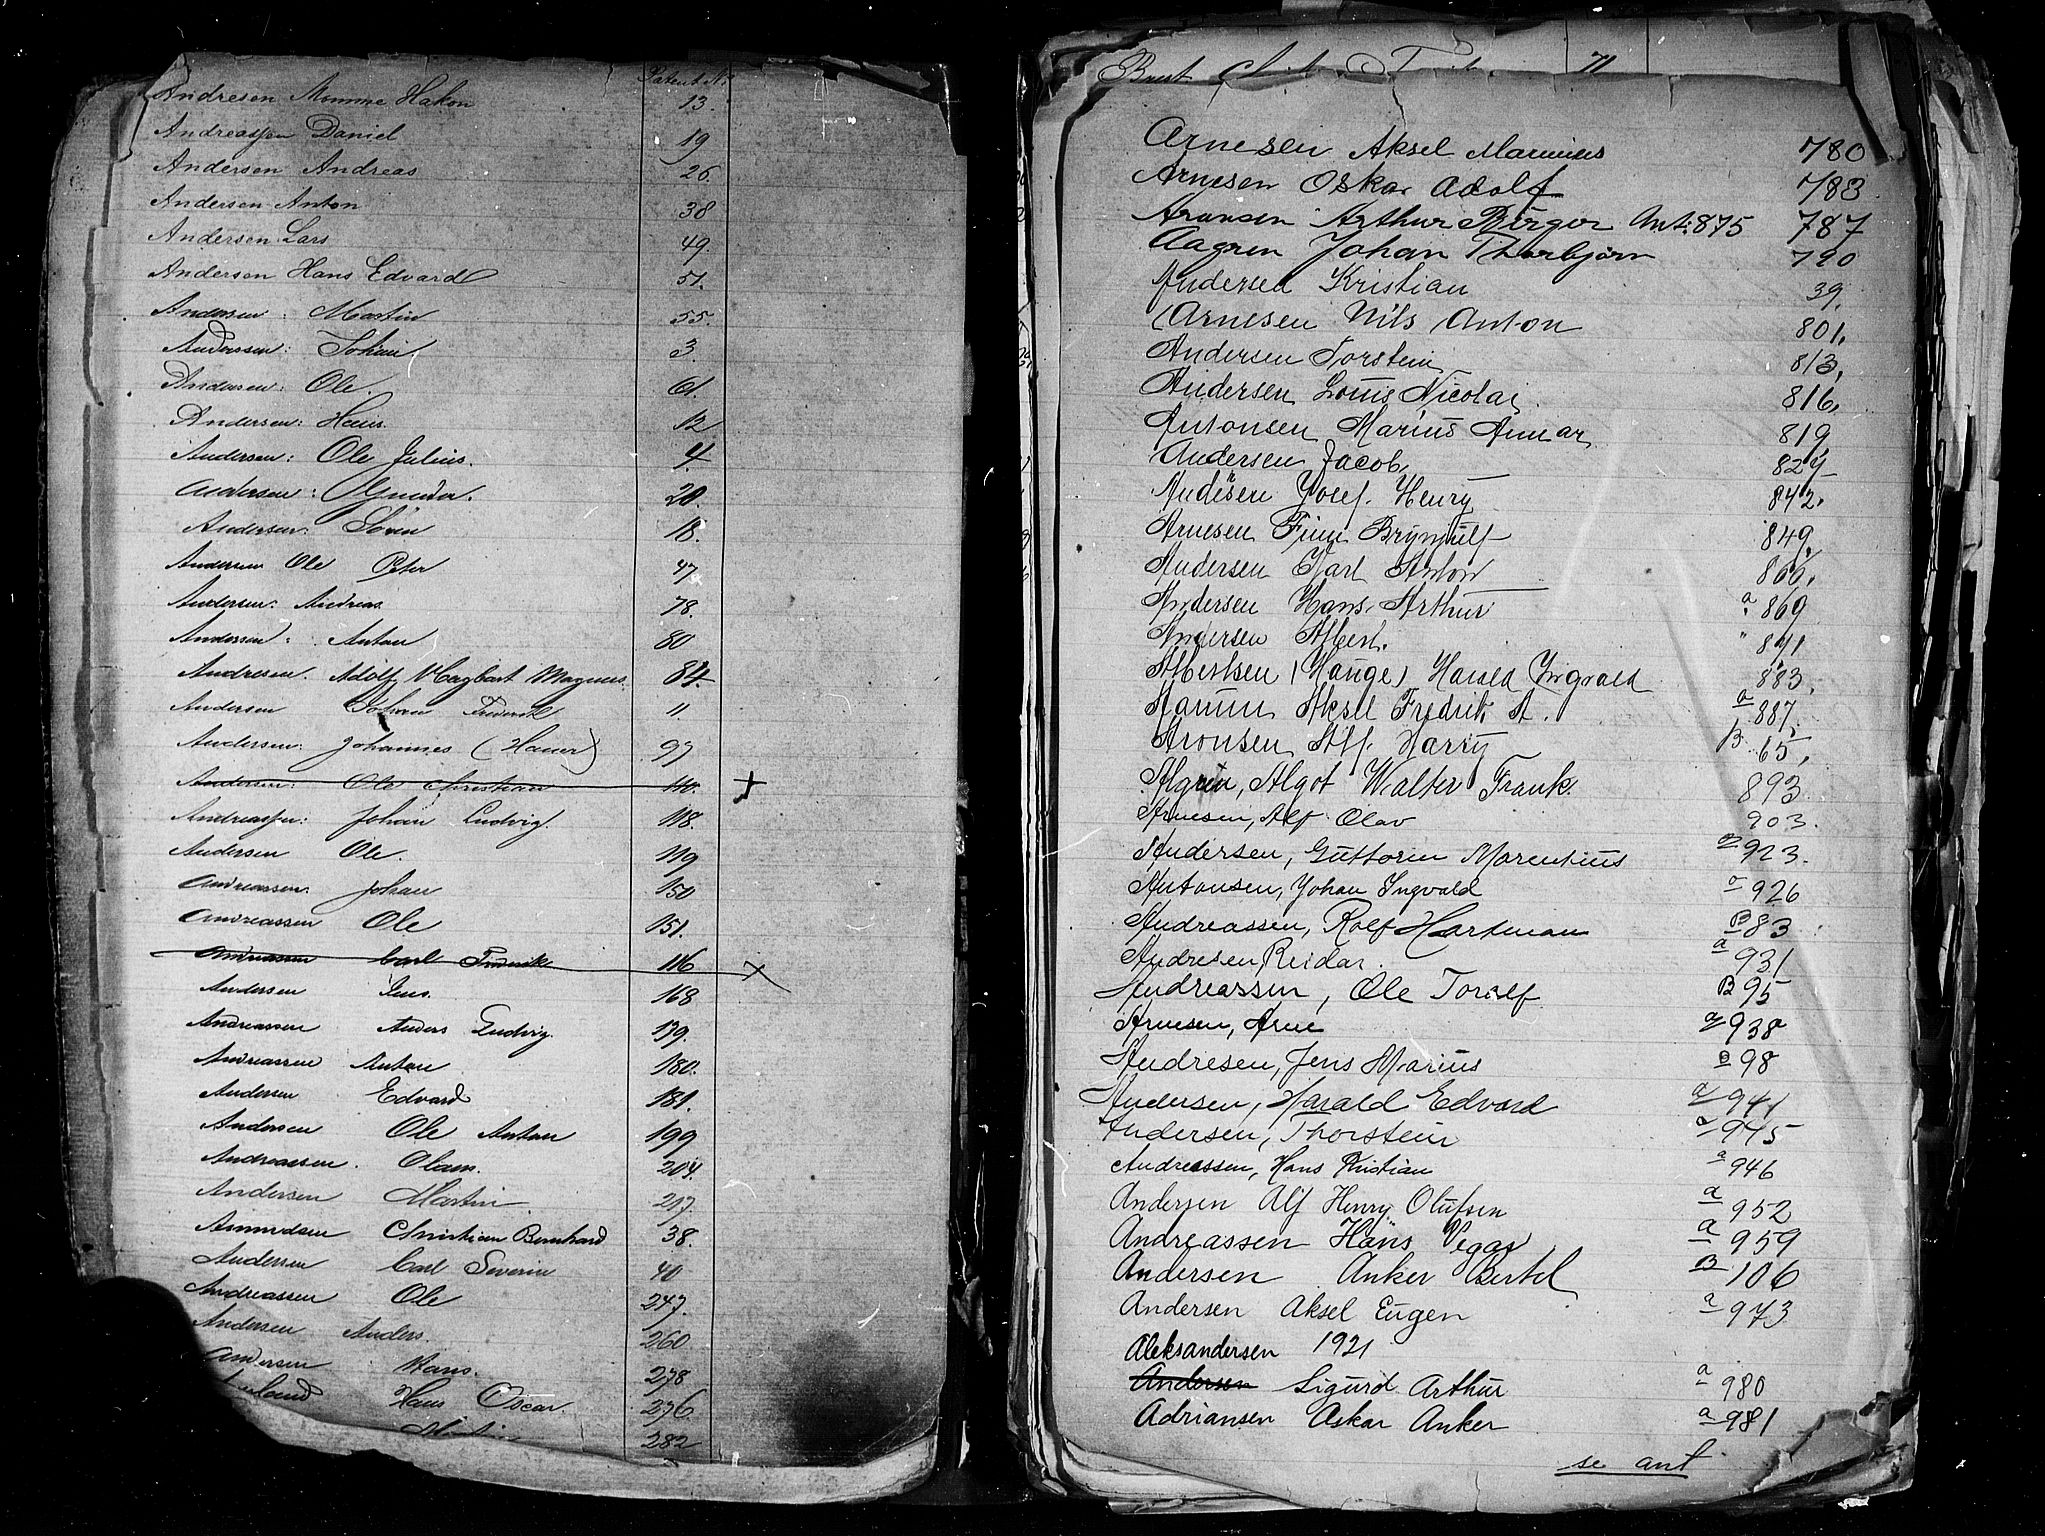 Patent №
Andresen Momme Hakon 13.
Andreassen Daniel 19
Andersen Andreas 26.
Andersen Anton 38
Andersen Lars 49.
Andersen Hans Edvard 51.
Andersen: Martin 55.
Anderssen: Johan 3.
Andersen: Ole. 61.
Andersen: Hans. 12
Andersen: Ole Julius. 4.
Andersen: 20.
Andersen: Sören 18.
Andersen Ole Peter 47
Andersen: Andreas. 78.
Andersen: Anton 80
Andresen. Adolf Hagbart Magnus 84.
Andersen Johan Frederik 11.
Andersen: Johannes (Hauer) 97
Andersen: Ole Christian 40. +
Andreassen: Johan Ludvig. 118.
Andersen Ole. 119
Andreassen. Johan 150
Andreassen Ole 151.
Andreassen Carl Fredrik 116 ×
Andersen Jens. 168
Andreassen Anders Ludvig. 139.
Andreassen Anton 180.
Andersen Edvard 181.
Andersen Ole Anton 199
Andreassen. Olam. 204.
Andersen Martin. 217.
Amundsen Christian Bernhard 38.
Andersen Carl Severin 40
Andreassen Ole 247.
Andersen Anders. 260.
Andersen Hans. 278
Hans Oscar. 276.
282
71
Arnesen Aksel Marinius 780
Arnesen Oskar Adolf 783
Aronsen Arthur Birger Ant: 875 787
Aagren Johan Thorbjørn 790
Andersen Kristian 39.
Arnesen Nils Anton 801.
Andersen Torstein 813.
Andersen Louis Nicolai. 816.
Antonsen Marius Annar 819.
Andersen Jacob. 824
Andersen Josef. Henry 842.
Arnesen Finn Brynjulf 849.
Andersen Karl Anton 866.
Andersen Hans Arthur a. 869
Andersen Albert. " 871
Albertsen (Hauge) Harald Ingvald 883.
Aamun Aksel Fredrik A. a 887.
Aronsen Alf. Harry B 65.
Algren, Algot Walter Frank. 893
Arnesen, Alf Olav 903.
Andersen, Guttorm Marentius a 923.
Antonsen, Johan Ingvald a 926
Andreassen, Rolf Hartman B 83
Andresen, Reidar. a 931
Andreassen, Ole Toralf B 95
Arnesen, Arne a 938
Andresen, Jens Marius B 98
Andersen, Harald Edvard a 941
Andersen, Thorstein a 945
Andreassen, Hans Kristian a 946
Andersen Alf Henry Olufsen a 952
Andreassen Hans Vegar a 959
Andersen Anker Bertel B 106
Andersen Aksel Eugen a 973
Aleksandersen 1921
Andersen Sigurd Arthur a 980
Adriansen Oskar Anker a 981
se ant